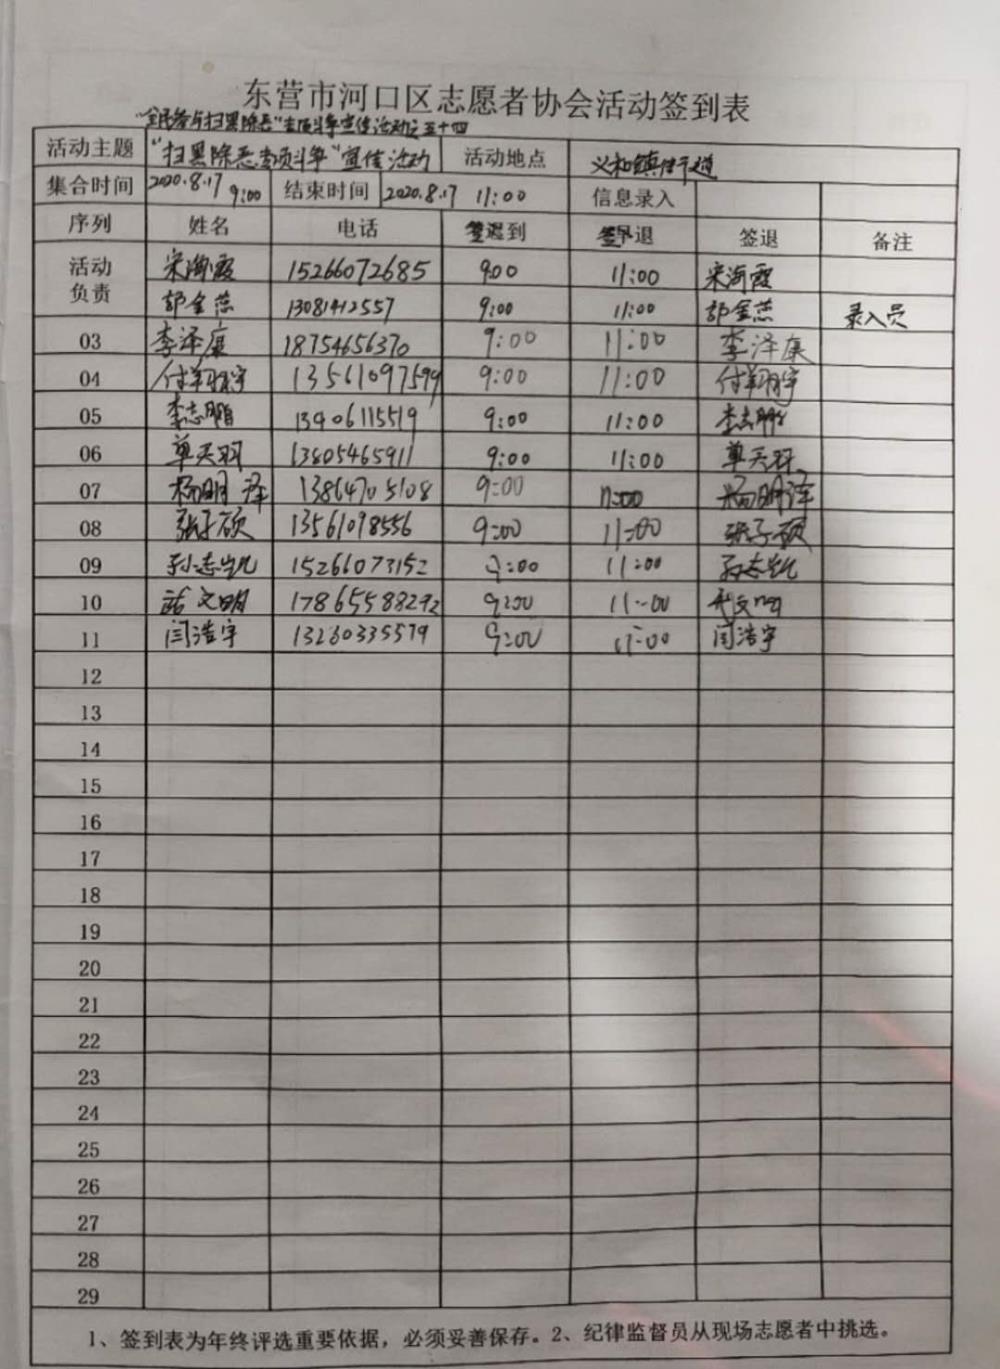 东营市河口区志愿者协会活动签到表
"全民参与扫黑除恶"专项斗争宣传活动之五十四
活动主题 "扫黑除恶专项斗争"宣传活动 活动地点 义和镇街道
集合时间 2020.8.17 9:00 结束时间 2020.8.17 11:00 信息录入
序列 姓名 电话 签到 签退 签退 备注
活动负责 宋海霞 15266072685 900 11:00 宋海霞
郭金蕊 13081412557 9:00 11:00 郭金蕊 录入员
03 李泽康 18754656370 9:00 11:00 李泽康
04 付翔宇 13561097599 9:00 11:00 付翔宇
05 李志鹏 13406115519 9:00 11:00 李志鹏
06 单天羽 13805465911 9:00 11:00 单天羽
07 杨明泽 13864705108 9:00 11:00 杨明泽
08 张子硕 13561098556 9:00 11:00 张子硕
09 孙志凯 15266073152 9:00 11:00 孙志凯
10 文明 17865588292 9:00 11:00 文明
11 闫浩宇 13260335579 9:00 11:00 闫浩宇
12
13
14
15
16
17
18
19
20
21
22
23
24
25
26
27
28
29
1、签到表为年终评选重要依据，必须妥善保存。2、纪律监督员从现场志愿者中挑选。